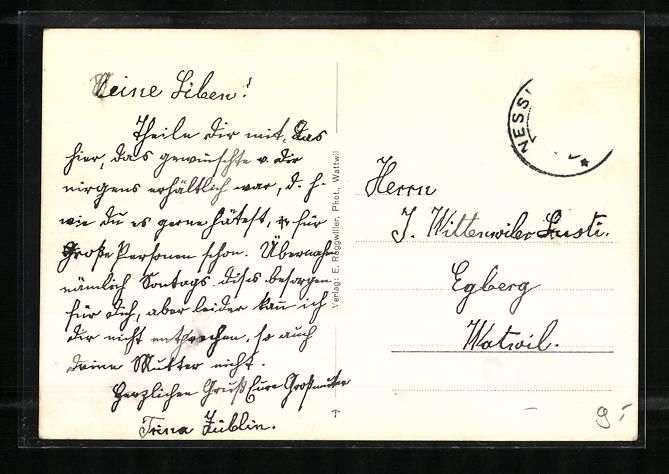 Meine Liben!
Theile dir mit, das
hier, das gewünschte v. dir
nirgens erhältlich war, d. h.
wie du es gerne hätest, für
Große Personen schon. Übernahm
nämlich Sontags dises besorgen
für dich, aber leider kan̄ ich
dir nicht entsprechen, so auch
deine Mutter nicht.
Herzlichen Gruß Eure Großmutter
Trina Züblin.
Verlag: E. Roggwiller, Phot., Wattwil
NESS
Herrn
J. Wittenwiler
Egberg
Watwil.
9.-